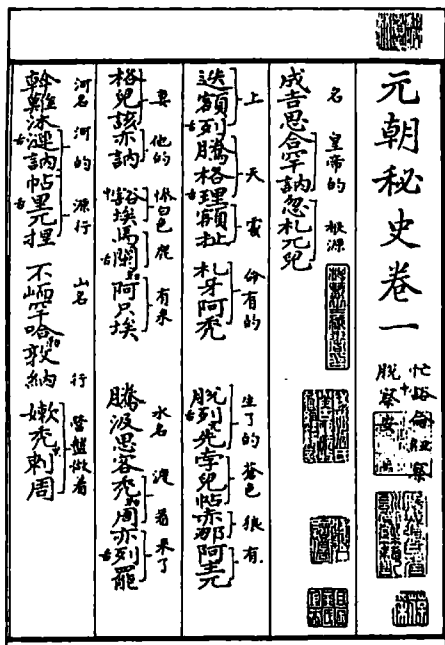 元朝秘史卷一
忙豁侖紐察
脫察安
名 皇帝的 根源
成吉思合罕訥忽札兀兒
上 天 處 命有的 生了的 蒼色 狼 有
迭額舌列騰格理額扯札牙阿禿脫舌列克先孛兒帖赤那阿主兀
妻 他的 慘白色 鹿 有來 水名 渡着 來了
格兒該亦訥中豁埃馬舌闌勒阿只埃騰汲思客禿勒周亦舌列罷
河名 河的 源行 山名 行 營盤做着
斡難沐舌漣訥帖舌里兀捏不峏罕哈勒敦納嫩禿剌周